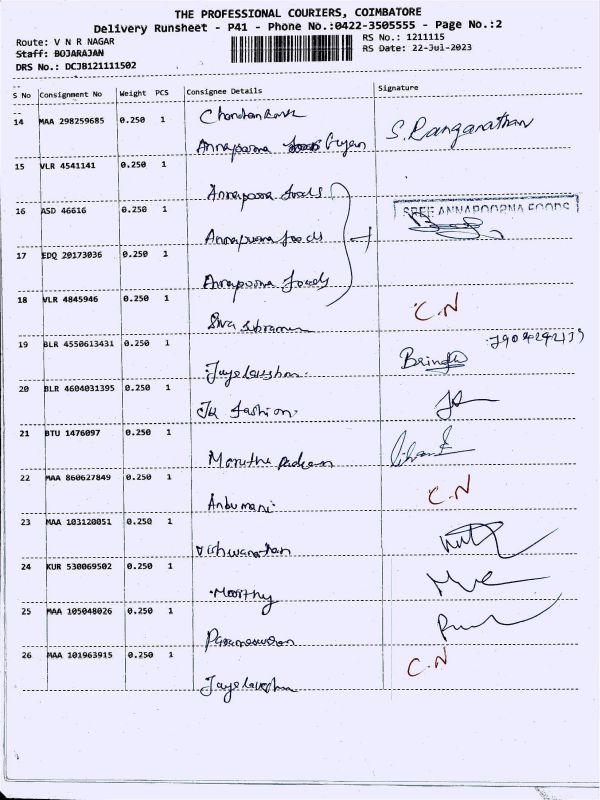 THE PROFESSIONAL COURIERS, COIMBATORE
Delivery Runsheet - P41 - Phone No.:0422-3505555 - Page No.:2
Route: V N R NAGAR RS No.: 1211115
Staff: BOJARAJAN RS Date: 22-Jul-2023
DRS No.: DCJB121111502
S No Consignment No Weight PCS Consignee Details Signature
14 MAA 298259685 0.250 1
Annapoorna S. Ranganathan
15 VLR 4541141 0.250 1
Annapoorna foods
16 ASD 46616 0.250 1 SREE ANNAPOORNA FOODS
Annapoorna foods
17 EDQ 20173036 0.250 1
Annapoorna foods
18 VLR 4845946 0.250 1 C.N
Siva
19 BLR 4550613431 0.250 1
Brinda
20 BLR 4604031395 0.250 1
Fashion
21 BTU 1476097 0.250 1
Maruthi
22 MAA 860627849 0.250 1 C.N
Anbumani
23 MAA 103120051 0.250 1
Vishwanathan
24 KUR 530069502 0.250 1
Moorthy
25 MAA 105048026 0.250 1
26 MAA 101963915 0.250 1 C.N